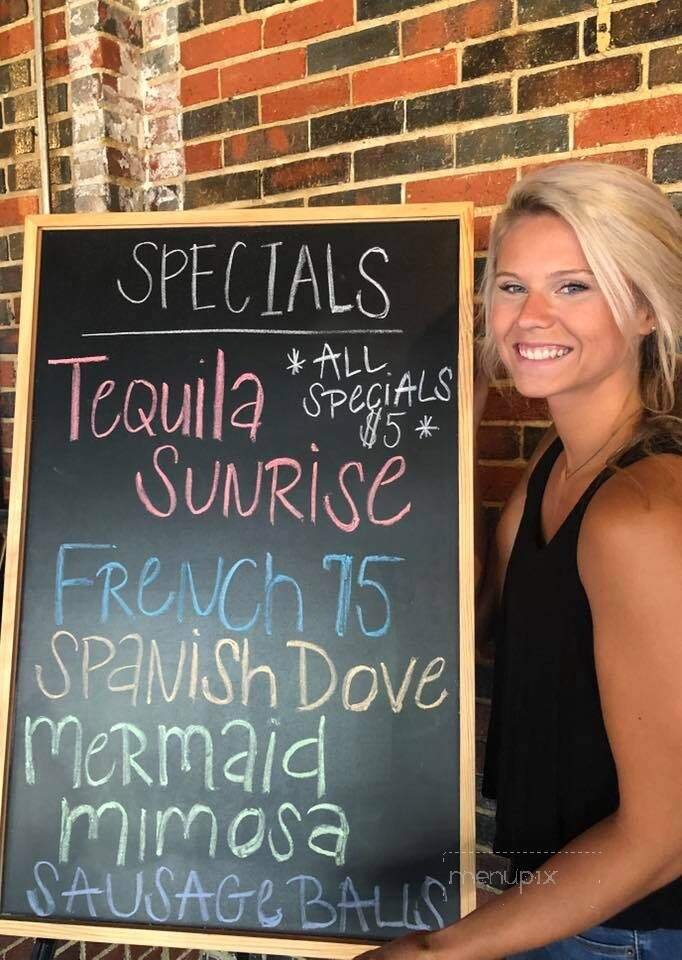 SPECIALS
Tequila
* ALL
SPECIALS
$5 *
SUNRISE
FRENCH 75
SPANISH DOVE
MERMAID
MIMOSA
SAUSAGE BALLS
menupix